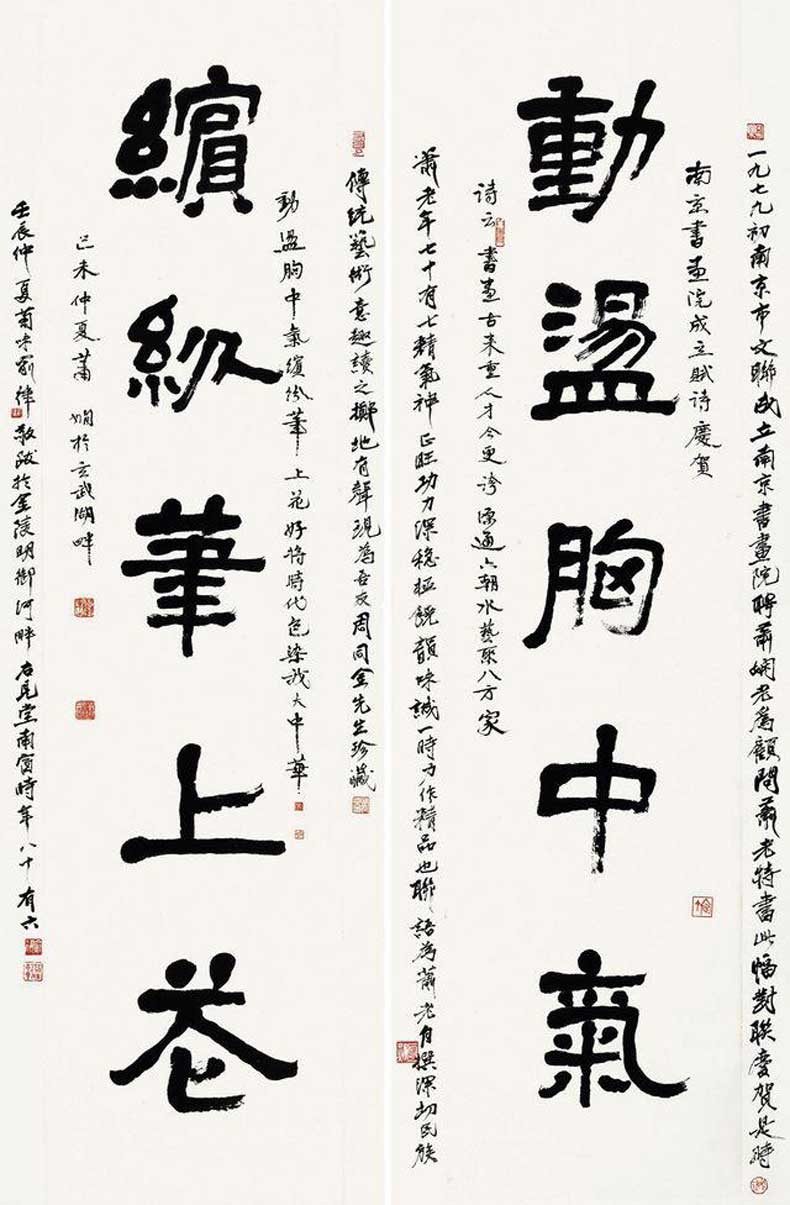 一九七九初南京市文聯成立南京書畫院聘蕭嫻老為顧問蕭老特書此幅對聯慶賀是時
南京書画院成立賦詩慶賀
動盪胸中氣
诗云書画古来重人才今更誇源通六朝水藝聚八方家
蕭老年七十有七精氣神正旺功力深稳極饒韻味誠一時力作精品也聯語為蕭老自撰深切民族
傳統藝術意趣讀之擲地有聲現為吾友周同金先生珍藏
動盪胸中氣繽紛筆上花好將時代色染我大中華
繽紛筆上花
己未仲夏蕭嫻於玄武湖畔
壬辰仲夏菊味 律敬跋於金陵明御河畔 堂南窗時年八十有六